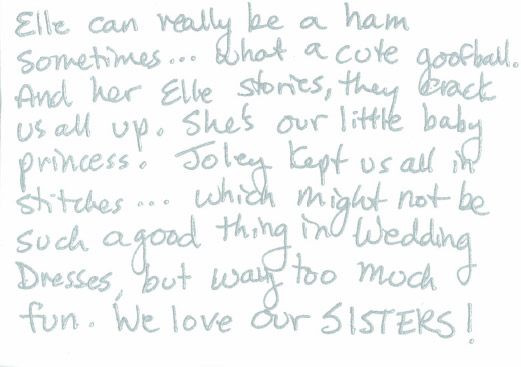 Elle can really be a ham
sometimes... what a cute goofball.
And her Elle stories, they crack
us all up. She's our little baby
princess. Joley kept us all in
stitches... which might not be
such a good thing in Wedding
Dresses, but way too much
fun. We love our SISTERS!